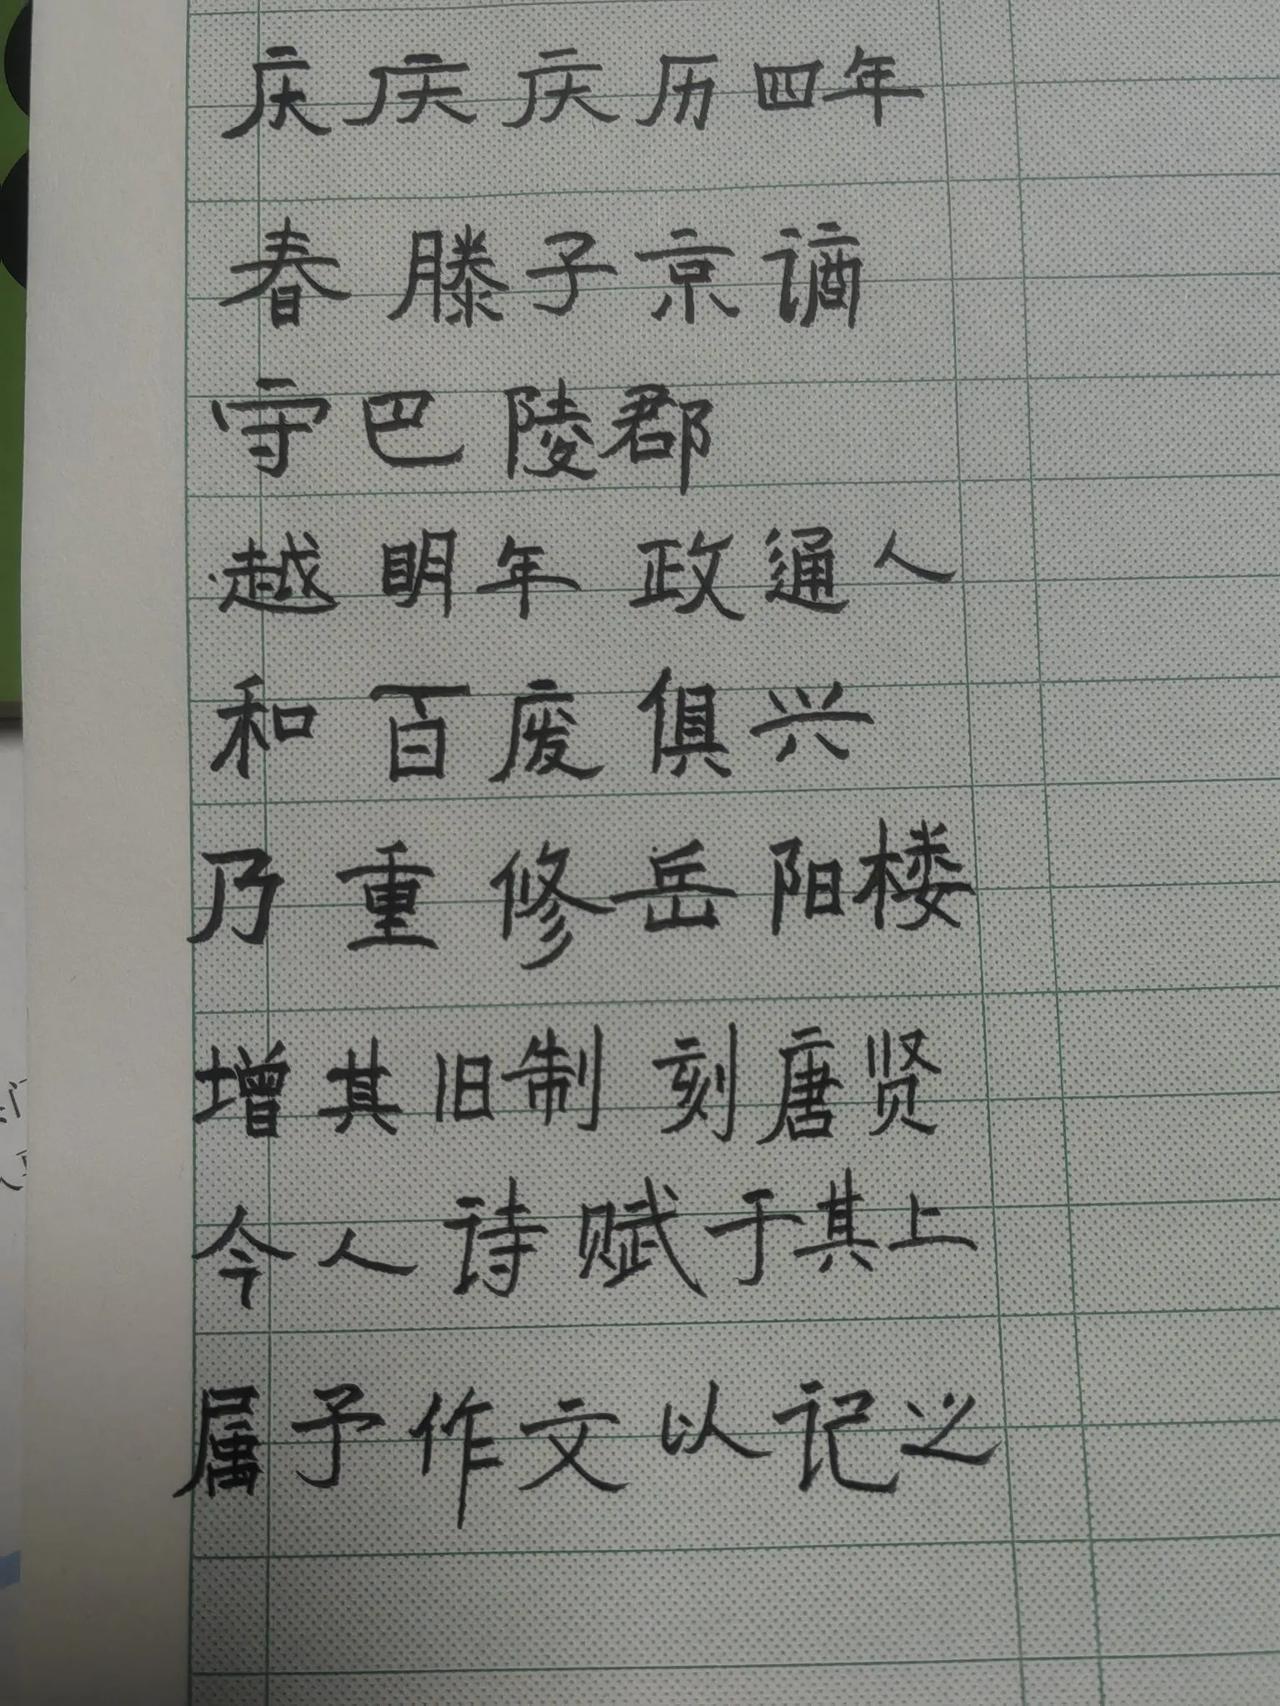 庆庆庆历四年
春滕子京谪
守巴陵郡
越明年政通人
和百废俱兴
乃重修岳阳楼
增其旧制刻唐贤
今人诗赋于其上
属予作文以记之